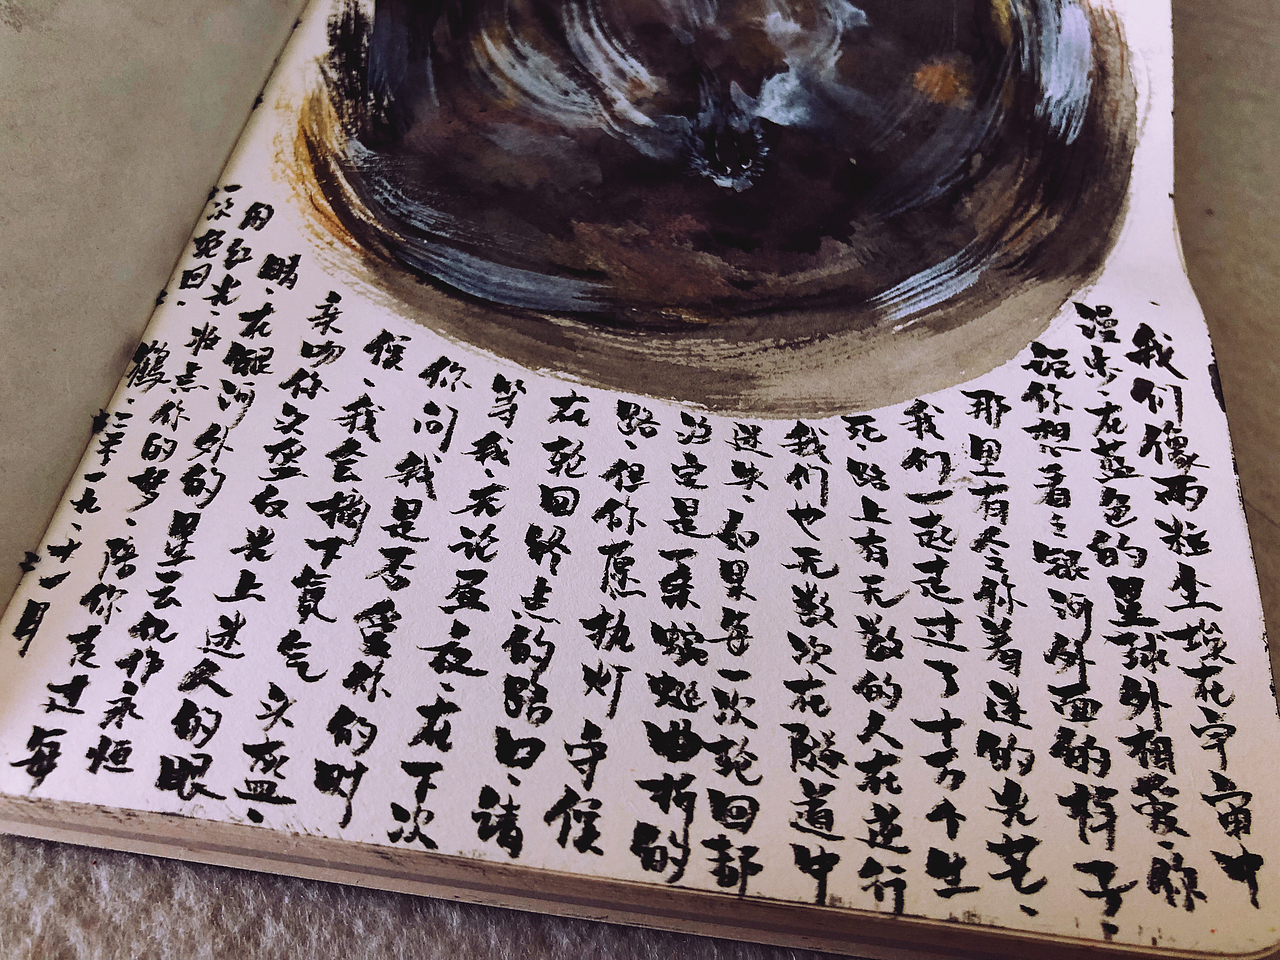 我们像两粒尘埃在宇宙中
漫步、在蓝色的星球外相爱、你
说你想看之银河外面的样子
那里有你着迷的光芒、
我们一起走过了十万个生
死、路上有无数的人在逆行
我们也无数次在隧道中
迷失、如果每一次轮回都
注定是一条蜿蜒曲折的
路、但你愿执灯守候
在轮回终点的路口、请
等我、无论昼夜、在下次
你问我是否爱你的时
候、我会摘下氧气头盔、
亲吻你上迷人的眼
睛、在银河外的星云化作永恒
用红光、妆点你的梦、陪你走过每
一次轮回、
鹤、二零一九、十一月